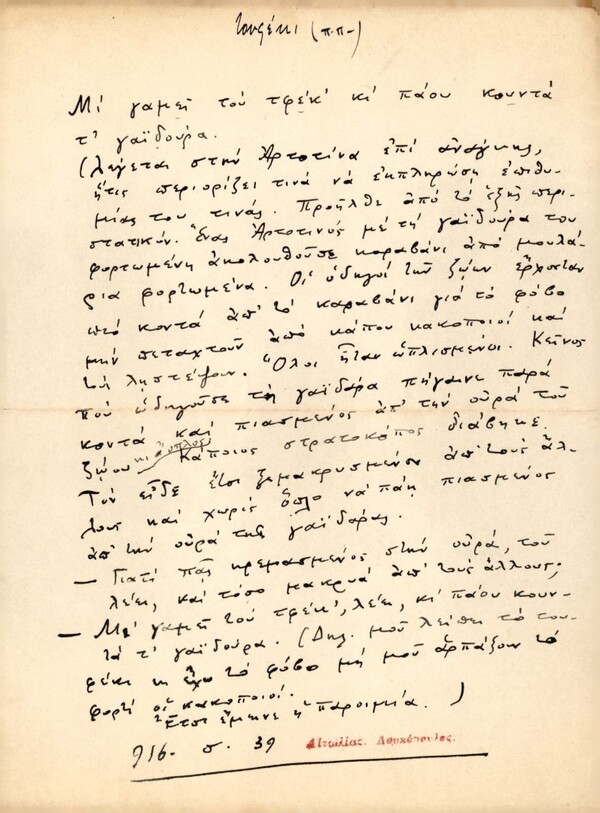 Τουφέκι (π.π-)
Μί γαμεῖ τοὺ τφέκ' κὶ πάου κουντά
τ' γαϊδούρα.
(λέγεται στὴν Ἀρτοτίνα ἐπὶ ἀνάγκης,
ἥτις περιορίζει τινὰ νὰ ἐκπληρώση ἐπιθυ-
μίας του τινάς. Προῆλθε ἀπὸ τὸ ἑξῆς περι-
στατικόν. Ἕνας Ἀρτοτινὸς μὲ τὴ γαϊδούρα του
φορτωμένη ἀκολουθοῦσε καραβάνι ἀπὸ μουλά-
ρια φορτωμένα. Οἱ ὁδηγοὶ τῶν ζώων ἔρχονταν
πιὸ κοντὰ ἀπ' τὸ καραβάνι γιὰ τὸ φόβο
μὴν πεταχτοῦν ἀπὸ κάπου κακοποιοὶ καὶ
τοὺς ληστέψουν. Ὅλοι ἦταν ὡπλισμένοι. Κεῖνος
ποὺ ὡδηγοῦσε τὴ γαϊδάρα πήγαινε παρὰ
κοντὰ καὶ πιασμένος ἀπ' τὴν οὐρὰ τοῦ
ζώου κι ἄοπλος. Κάποιος στρατοκόπος διάβηκε.
Τὸν εἶδε ἔτσι ξεμακρυσμένον ἀπ' τοὺς ἄλ-
λους καὶ χωρὶς ὅπλο νὰ πάη πιασμένος
ἀπ' τὴν οὐρὰ τῆς γαϊδάρας.
— Γιατί πᾶς κρεμασμένος στὴν οὐρά, τοῦ
λέει, καὶ τόσο μακρυὰ ἀπ' τοὺς ἄλλους;
— Μί γαμεῖ τοὺ τφέκ', λέει, κὶ πάου κουν-
τὰ τ' γαϊδούρα. (Δηλ. μοῦ λείπει τὸ του-
φέκι κι ἔχω τὸ φόβο μή μοῦ ἁρπάξουν τὸ
φορτί οἱ κακοποιοί.
Ἔτσι ἔμεινε ἡ παροιμία. )
916. σ. 39 Αἰτωλίας. Λουκόπουλος.